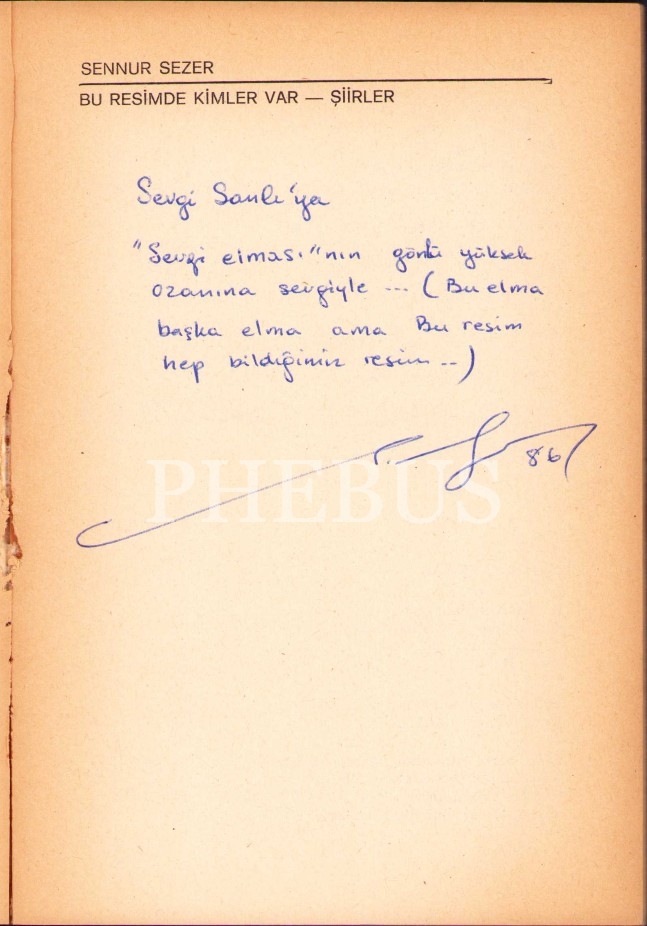 SENNUR SEZER
BU RESİMDE KİMLER VAR — ŞİİRLER
Sevgi Sanlı'ya
"Sevgi elması"nın gönlü yüksek
ozanına sevgiyle ... ( Bu elma
başka elma ama Bu resim
hep bildiğimiz resim ..)
86
PHEBUS